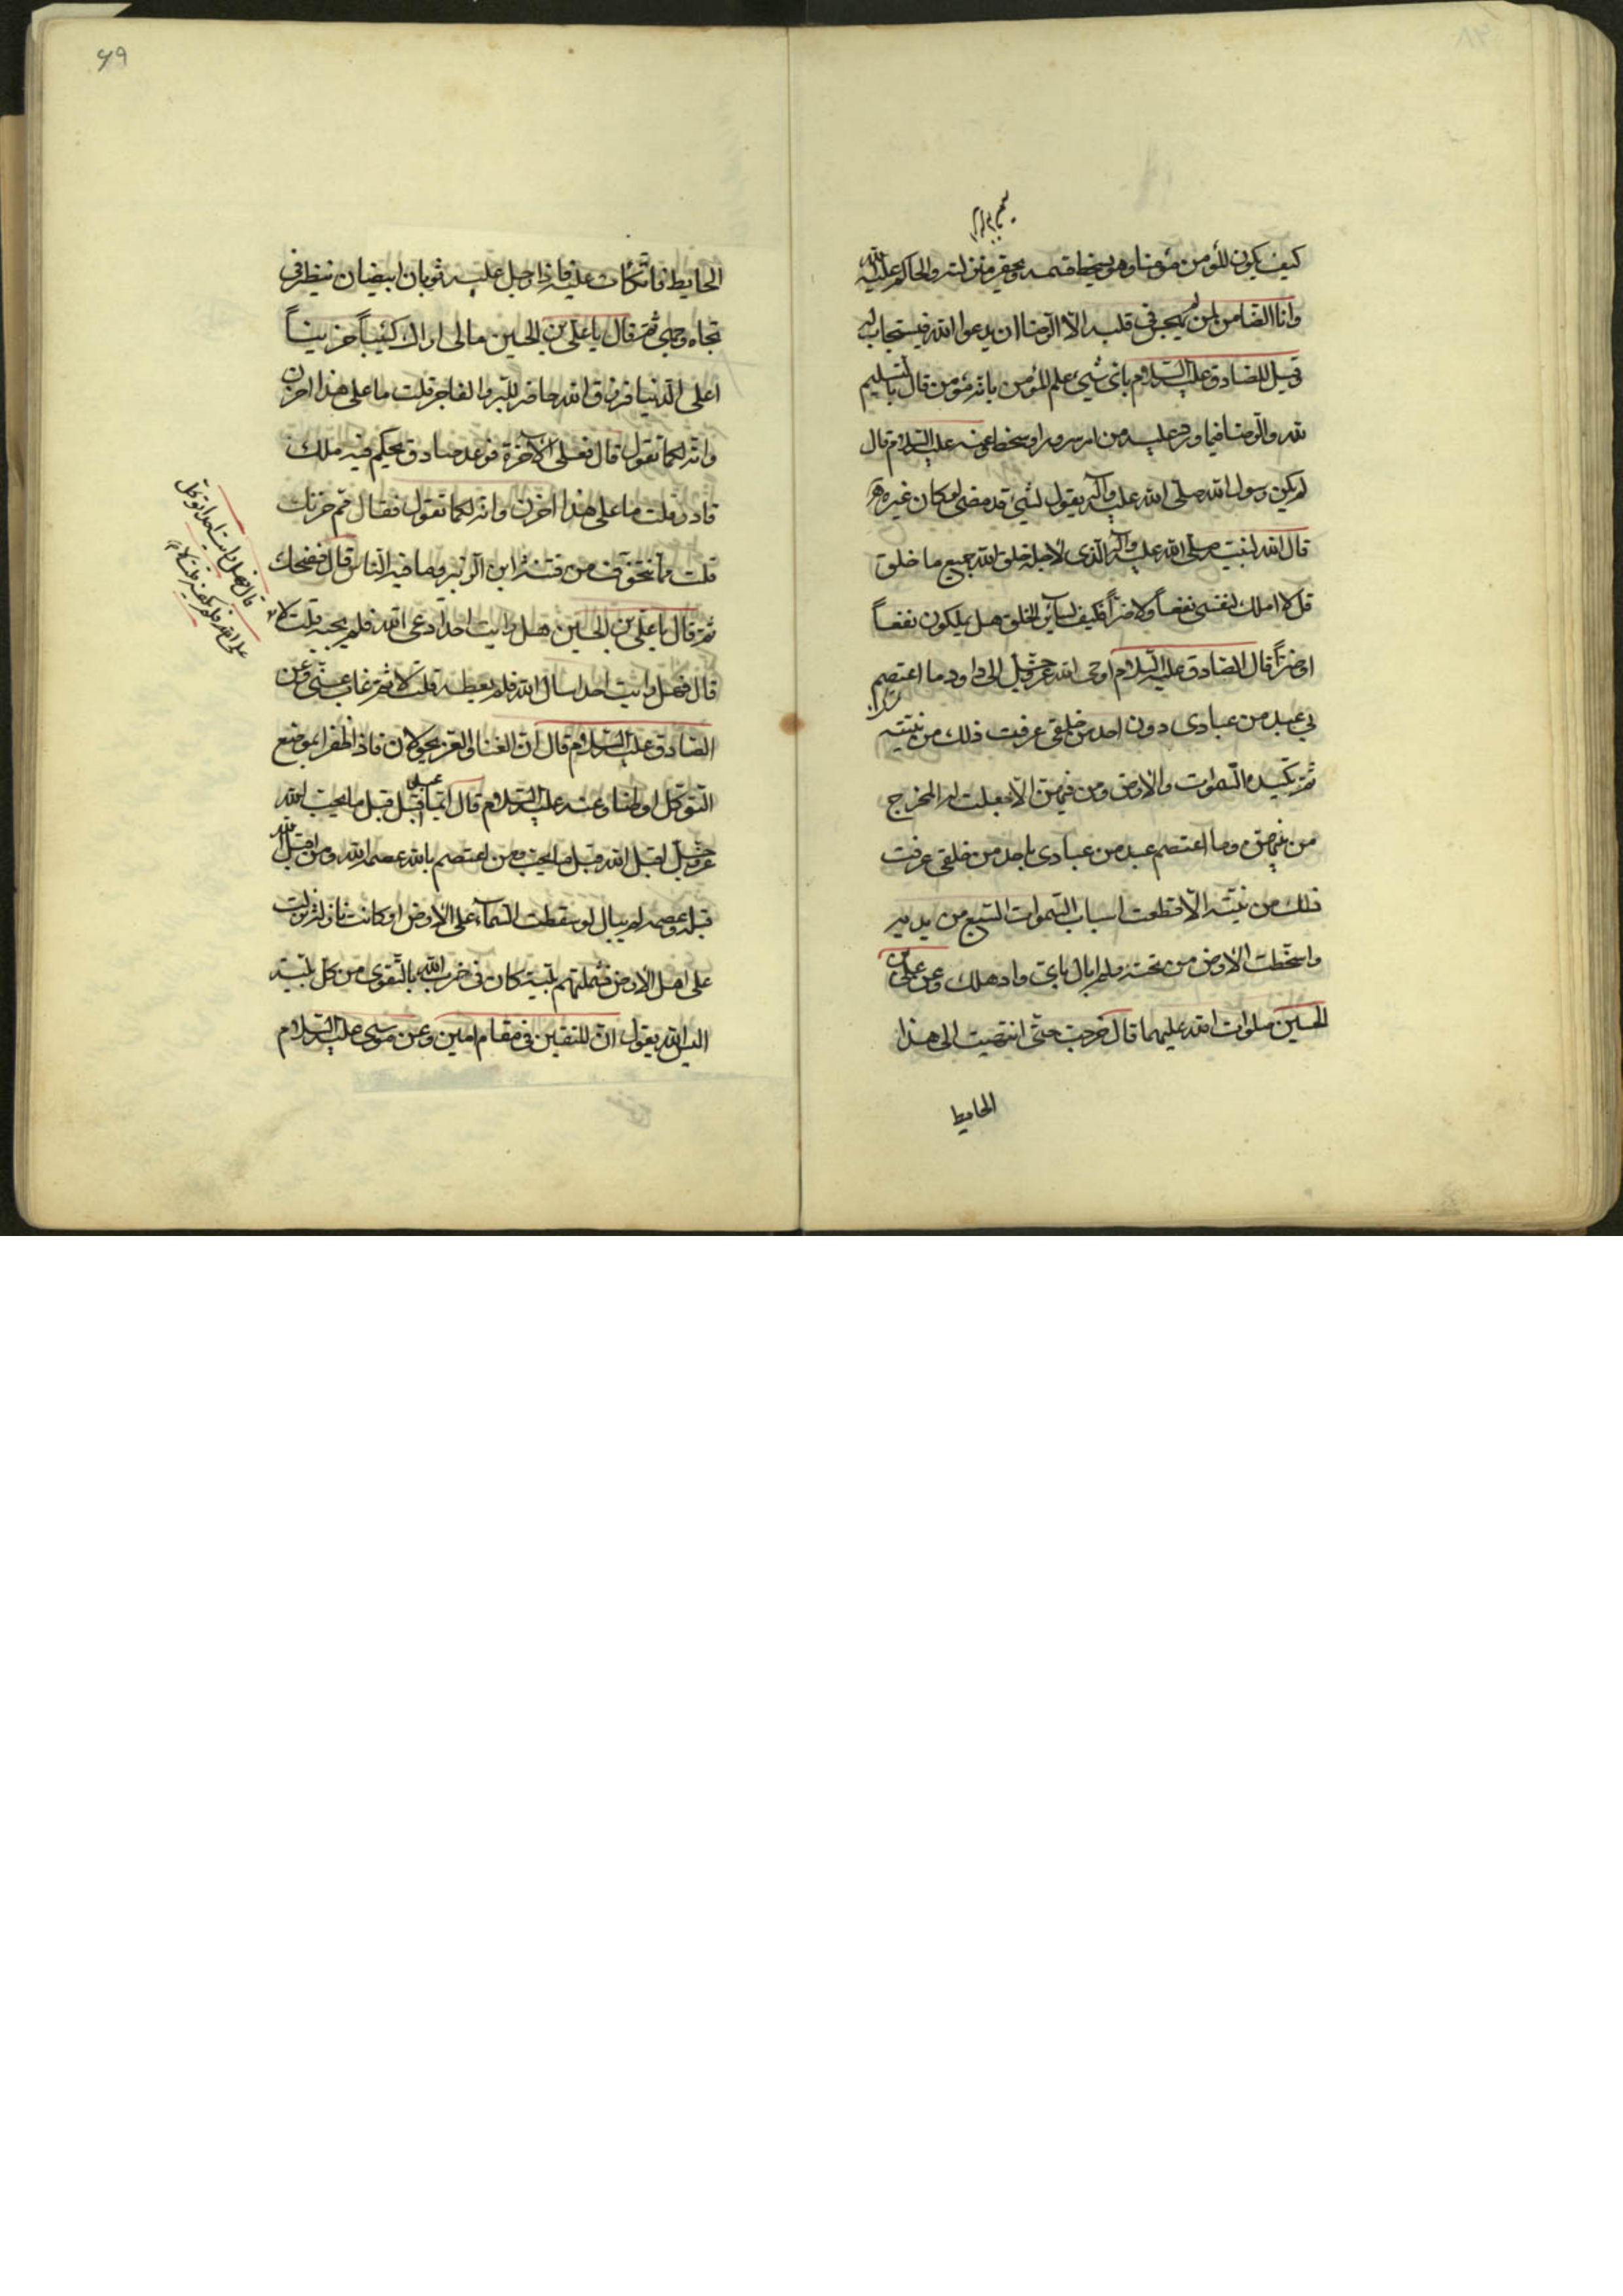 كيف يكون المؤمن مؤمنا وهو يسخط قسمه ويحقر منزلته والحاكم عليه الله
وانا الضامن لمن لم يهجس في قلبه الا الرضا ان يدعوا الله فيستجاب له
وقيل للصادق عليه السلام باى شيء علم المؤمن بانه مؤمن قال بالتسليم
لله والرضا فيما ورد عليه من سرور او سخط وعنه عليه السلام قال
لم يكن رسول الله صلى الله عليه وآله يقول لشيء قد مضى لو كان غيره
قال الله لنبيه صلى الله عليه وآله الذى لاجله خلق الله جميع ما خلق
قل لا املك لنفسى نفعاً ولا ضراً فكيف لسائر الخلق هل يملكون نفعاً
او ضراً قال الصادق عليه السلام اوحى الله عز وجل الى داود ما اعتصم
بي عبد من عبادى دون احد من خلقى عرفت ذلك من نيته
ثم تكيده السموات والارض ومن فيهن الا جعلت له المخرج
من وما اعتصم عبد من عبادى باحد من خلقى عرفت
ذلك من نيته الا قطعت اسباب السموات السبع من يديه
واسخطت الارض من تحته ولم ابال باى واد هلك وعن على بن
الحسين صلوات الله عليهما قال خرجت حتى انتهيت الى هذا
الحايط
49
الحايط فاتكأت عليه فاذا رجل عليه ثوبان ابيضان ينظر في
تجاه وجهى ثم قال يا على بن الحسين مالى اراك كئيباً حزيناً
اعلى الدنيا فرزق الله حاضر للبر والفاجر قلت ما على هذا احزن
وانه لكما تقول قال فعلى الآخرة فوعد صادق يحكم فيه ملك
قادر قلت ما على هذا احزن وانه لكما تقول فقال مم حزنك
قلت مما نتخوف من فتنة ابن الزبير وما فيه الناس قال فضحك
ثم قال يا على بن الحسين هل رايت احدا دعى الله فلم يجبه قلت لا
قال فهل رايت احدا توكل
على الله فلم يكفه قلت لا
قال فهل رايت احدا سال الله فلم يعطه قلت لا ثم غاب عنى وعن
الصادق عليه السلام قال ان الغنا والعز يجولان فاذا ظفرا بموضع
التوكل اوطنا وعنه عليه السلام قال ايما عبد اقبل قبل ما يحب الله
عز وجل اقبل الله قبل ما يحب ومن اعتصم بالله عصمه الله ومن اقبل الله
قبله وعصمه لم يبال لو سقطت السماء على الارض او كانت نازلة نزلت
على اهل الارض فشملتهم بلية كان في حزب الله بالتقوى من كل بلية
اليس الله يقول ان المتقين في مقام امين وعن موسى عليه السلام